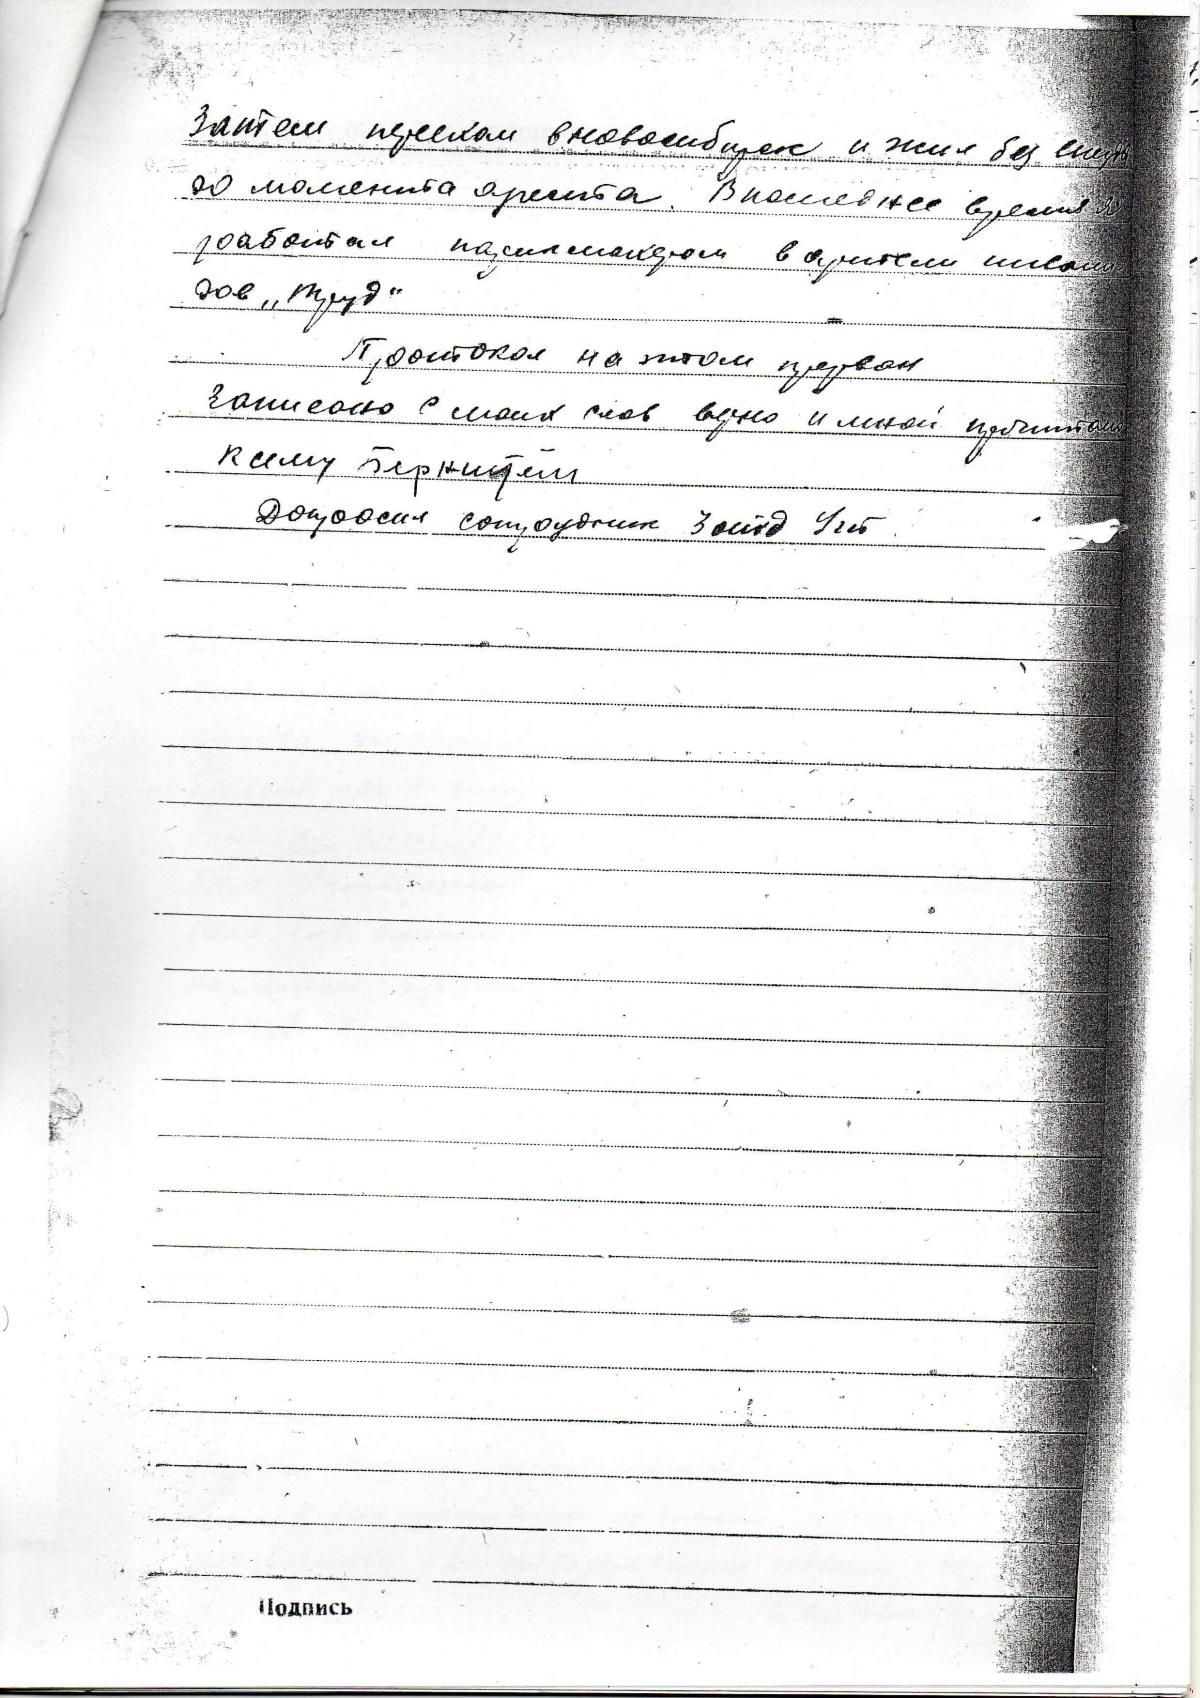 Затем приехал в Новосибирск и жил без
до момента ареста. В последнее время я
работал парикмахером в артели инвали
дов „Труд“
Протокол на этом прерван
Записано с моих слов верно и мной прочитано
к сему
Допросил сотрудник
Подпись